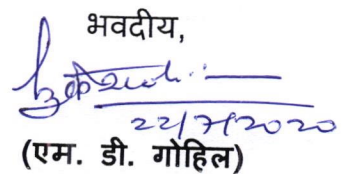 भवदीय,
22/7/2020
(एम. डी. गोहिल)